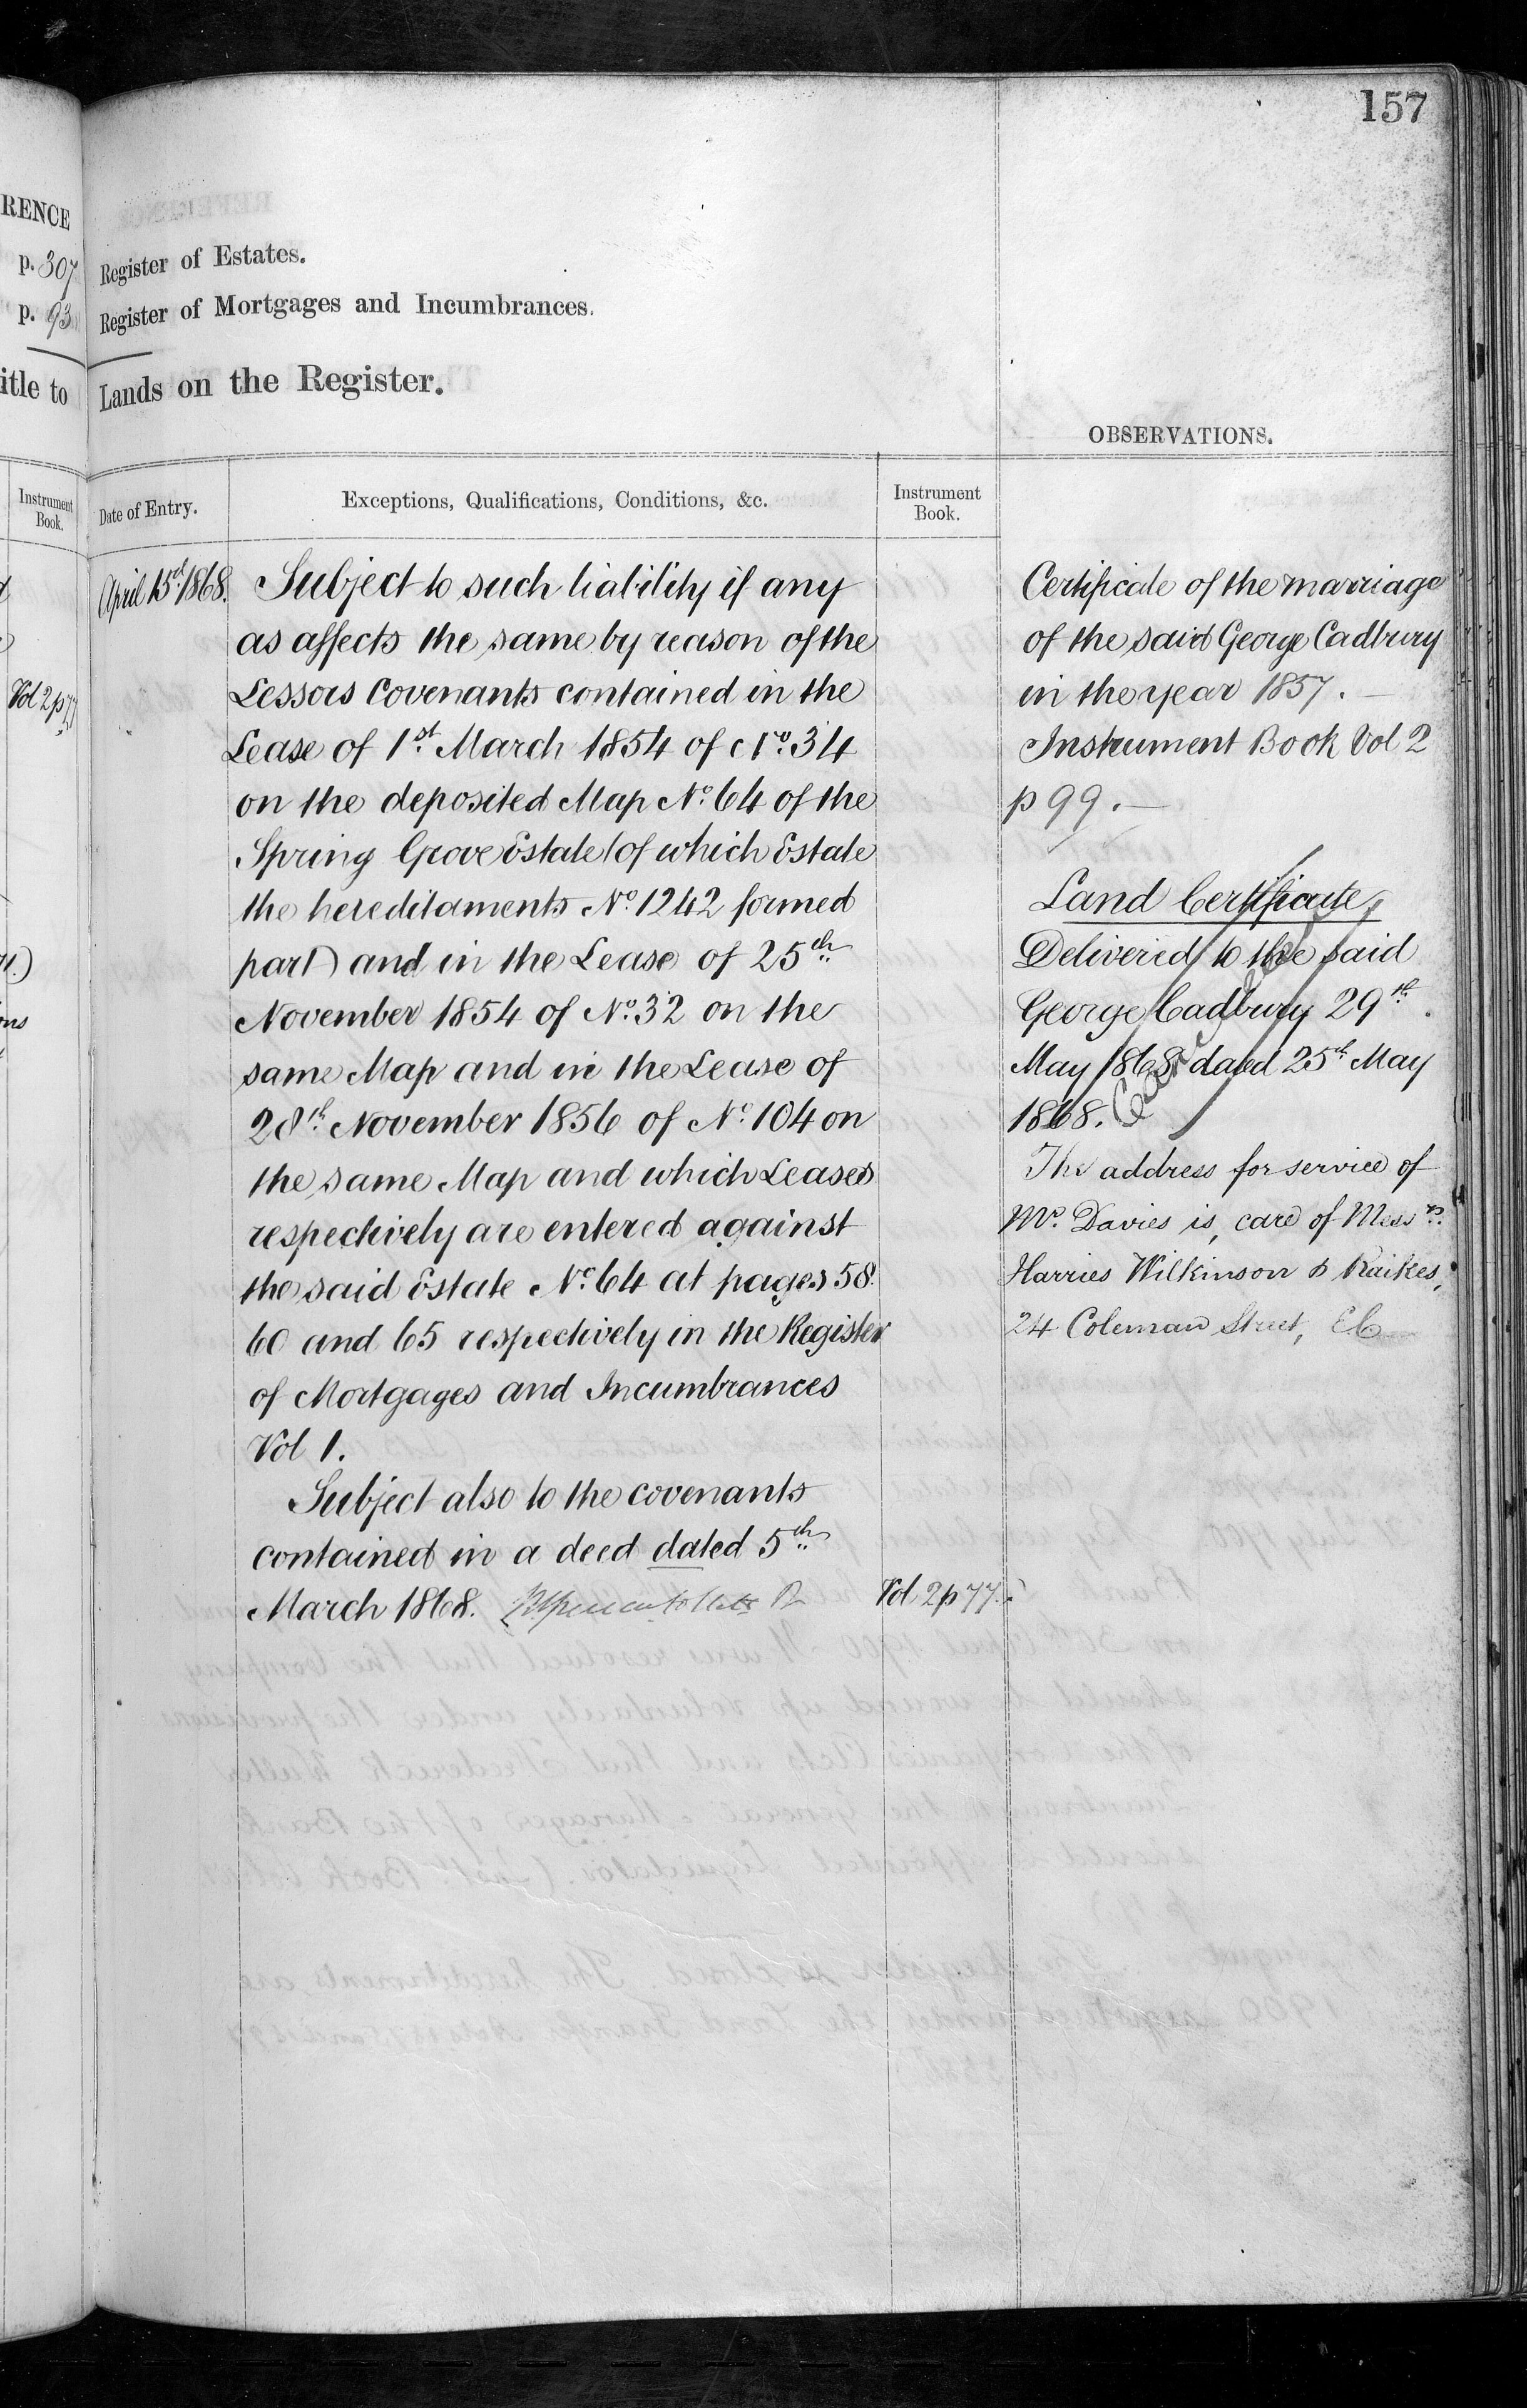 157
RENCE
p. 307
p. 93
itle to
Instrument
Book.
Vol 2 p 77
Register of Estates.
Register of Mortgages and Incumbrances.
Lands on the Register.
Date of Entry.
Exceptions, Qualifications, Conditions, &c.
Instrument
Book.
OBSERVATIONS.
April 15th 1868.
Subject to such liability if any
as affects the same by reason of the
Lessors Covenants contained in the
Lease of 1st March 1854 of No. 34
on the deposited Map No. 64 of the
Spring Grove Estate (of which Estate
the hereditaments No. 1242 formed
part) and in the Lease of 25th
November 1854 of No. 32 on the
same Map and in the Lease of
28th November 1856 of No. 104 on
the same Map and which Leases
respectively are entered against
the said Estate No. 64 at pages 58.
60 and 65 respectively in the Register
of Mortgages and Incumbrances
Vol 1.
Subject also to the covenants
contained in a deed dated 5th
March 1868.
Vol 2 p 77.
Certificate of the marriage
of the said George Cadbury
in the year 1857.
Instrument Book Vol 2
p 99.
Land Certificate
Delivered to the said
George Cadbury 29th
May 1868 dated 25th May
1868.
Cancelled
The address for service of
Mr. Davies is, care of Messrs.
Harries Wilkinson & Raikes,
24 Coleman Street, EC